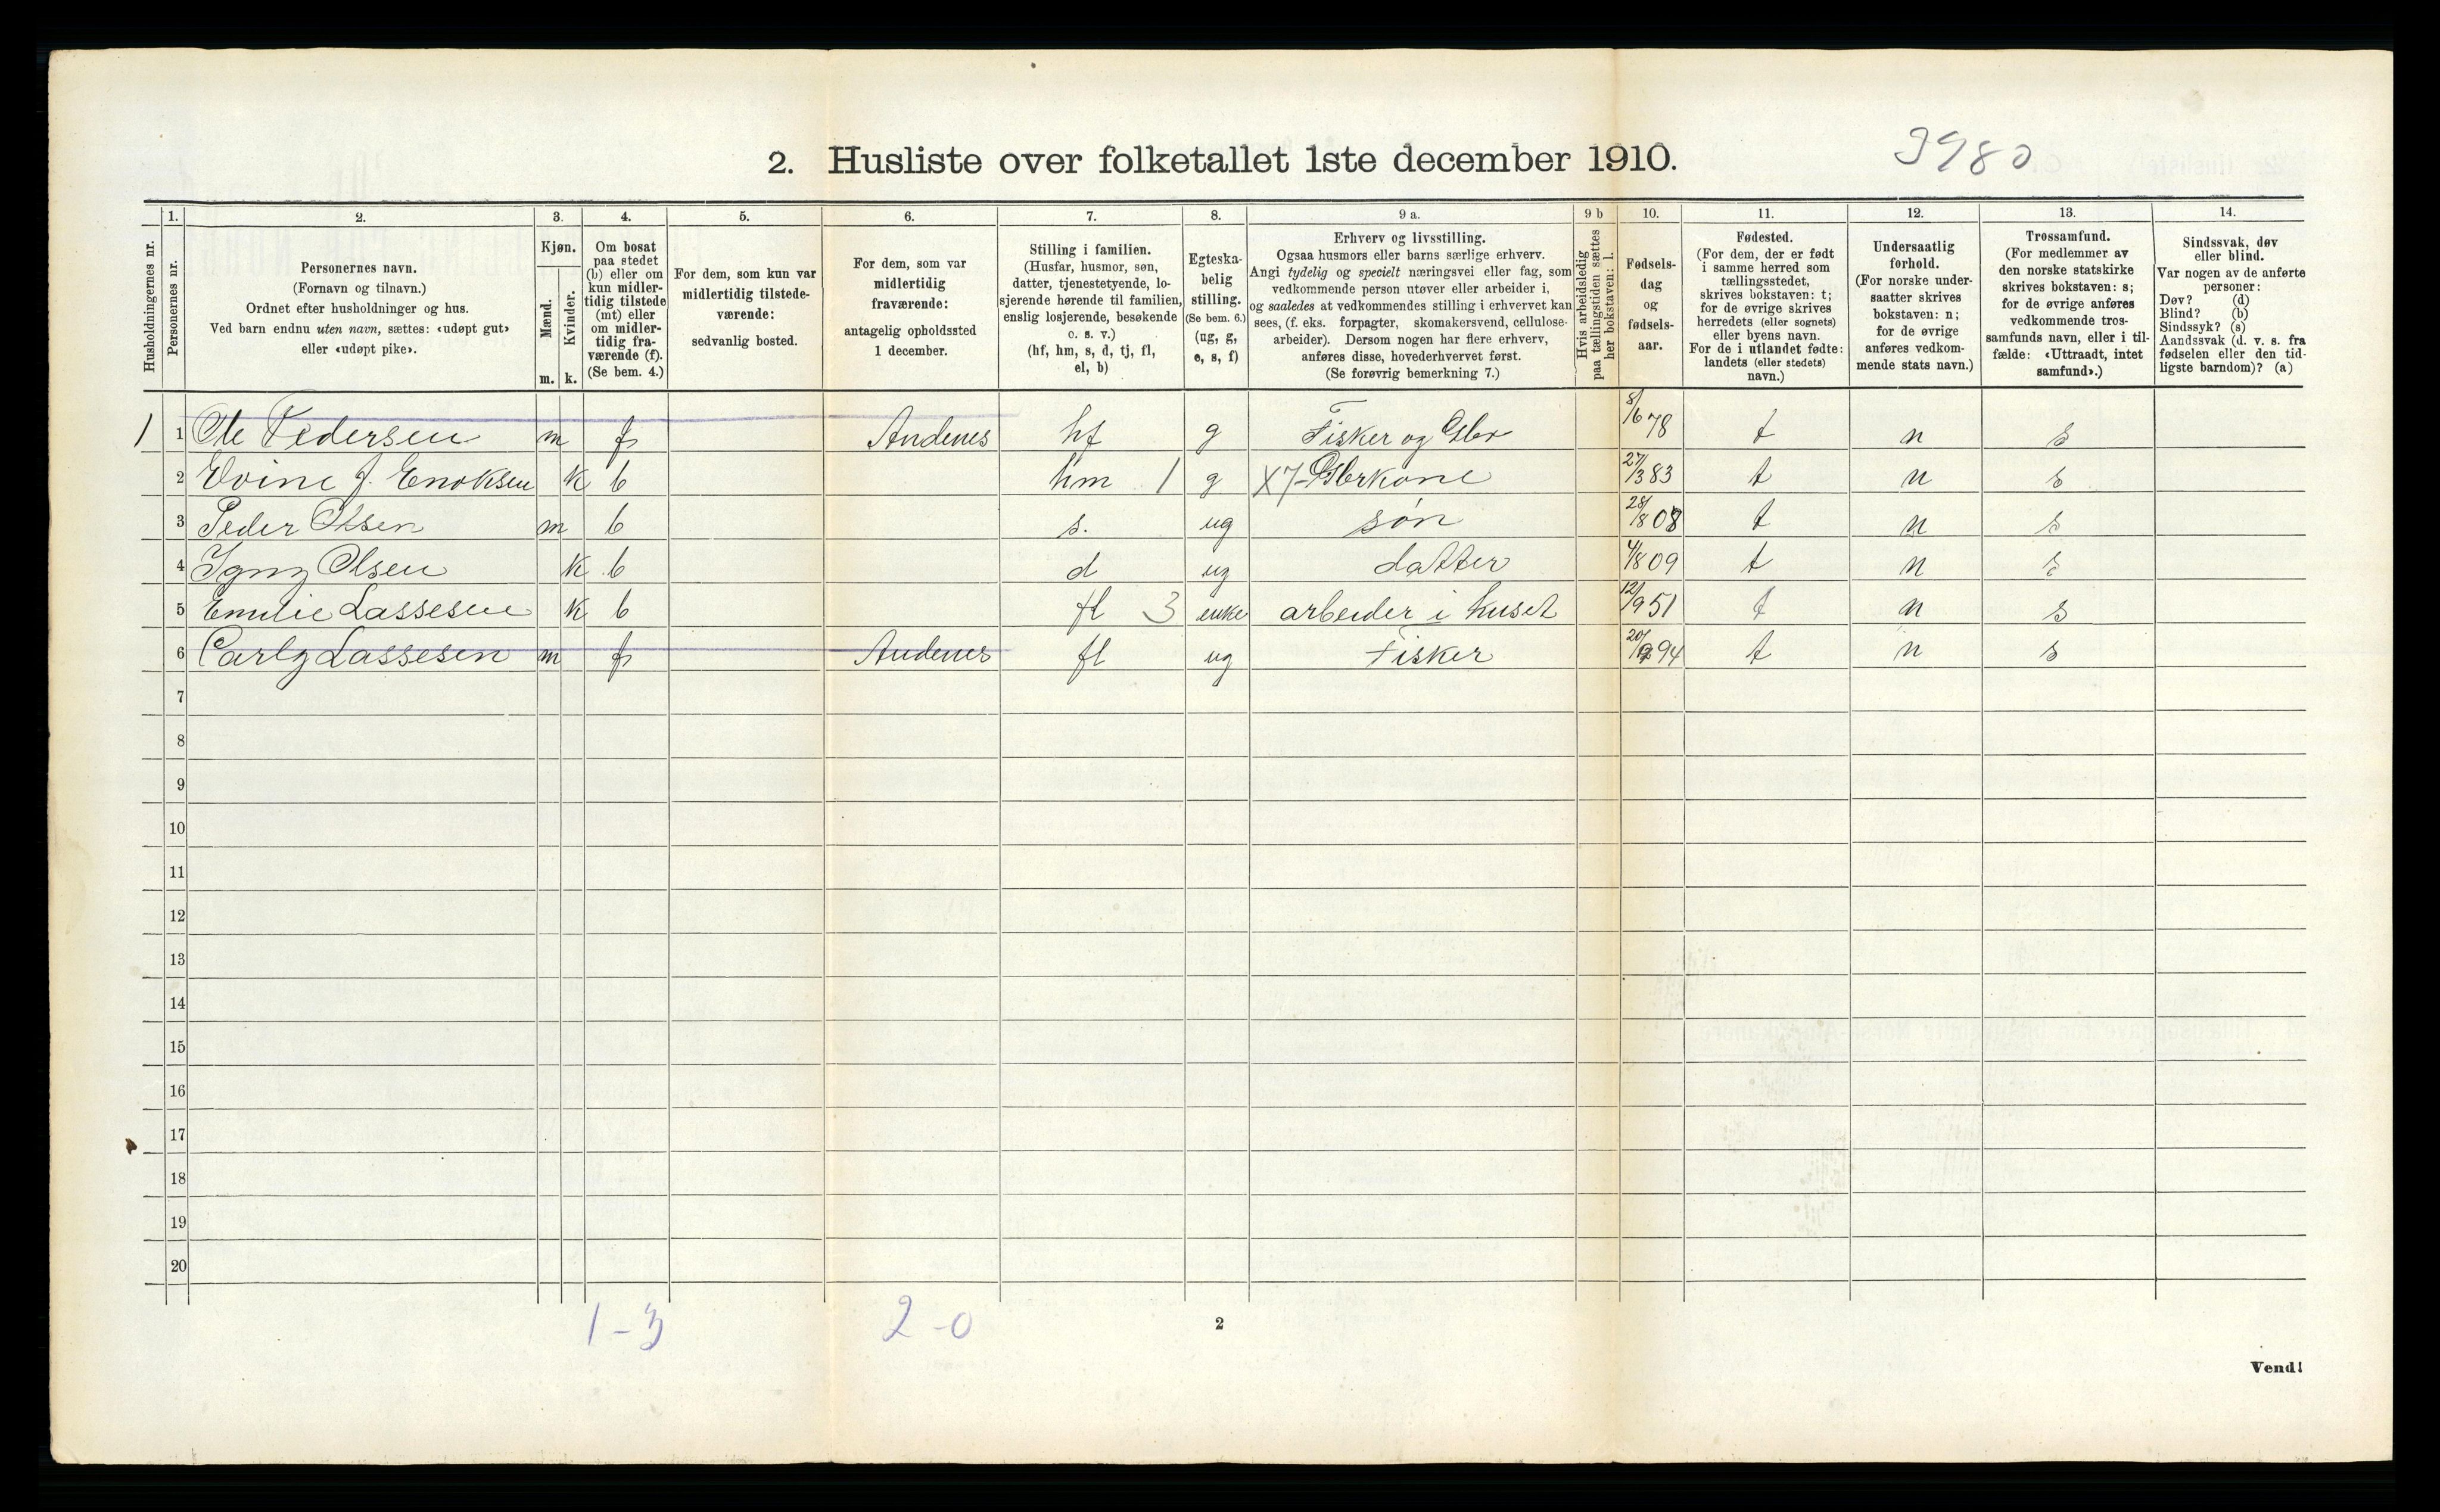 2. Husliste over folketallet 1ste december 1910.
3980
Husholdningernes nr.
1. Personernes nr.
2. Personernes navn.
(Fornavn og tilnavn.)
Ordnet efter husholdninger og hus.
Ved barn endnu uten navn, sættes: «udøpt gut»
eller «udøpt pike».
3. Kjøn.
Mænd. m.
Kvinder. k.
4. Om bosat
paa stedet
(b) eller om
kun midler-
tidig tilstede
(mt) eller
om midler-
tidig fra-
værende (f).
(Se bem. 4.)
5. For dem, som kun var
midlertidig tilstede-
værende:
sedvanlig bosted.
6. For dem, som var
midlertidig
fraværende:
antagelig opholdssted
1 december.
7. Stilling i familien.
(Husfar, husmor, søn,
datter, tjenestetyende, lo-
sjerende hørende til familien,
enslig losjerende, besøkende
o. s. v.)
(hf, hm, s, d, tj, fl,
el, b)
8. Egteska-
belig
stilling.
(Se bem. 6.)
(ug, g,
e, s, f)
9 a. Erhverv og livsstilling.
Ogsaa husmors eller barns særlige erhverv.
Angi tydelig og specielt næringsvei eller fag, som
vedkommende person utøver eller arbeider i,
og saaledes at vedkommendes stilling i erhvervet kan
sees, (f. eks. forpagter, skomakersvend, cellulose-
arbeider). Dersom nogen har flere erhverv,
anføres disse, hovederhvervet først.
(Se forøvrig bemerkning 7.)
9 b Hvis arbeidsledig
paa tællingstiden sættes
her bokstaven: l.
10. Fødsels-
dag
og
fødsels-
aar.
11. Fødested.
(For dem, der er født
i samme herred som
tællingsstedet,
skrives bokstaven: t;
for de øvrige skrives
herredets (eller sognets)
eller byens navn.
For de i utlandet fødte:
landets (eller stedets)
navn.)
12. Undersaatlig
forhold.
(For norske under-
saatter skrives
bokstaven: n;
for de øvrige
anføres vedkom-
mende stats navn.)
13. Trossamfund.
(For medlemmer av
den norske statskirke
skrives bokstaven: s;
for de øvrige anføres
vedkommende tros-
samfunds navn, eller i til-
fælde: «Uttraadt, intet
samfund».)
14. Sindssvak, døv
eller blind.
Var nogen av de anførte
personer:
Døv? (d)
Blind? (b)
Sindssyk? (s)
Aandssvak (d. v. s. fra
fødselen eller den tid-
ligste barndom)? (a)
1 1 Ole Pedersen m f Andenes hf g Fisker og Gbr 8/6 78 t n s
2 Ovine J. Enoksen k b hm 1 g X7-Gbrkone 27/3 83 t n s
3 Peder Olsen m b s. ug søn 28/8 08 t n s
4 Olsen k b d ug datter 4/8 09 t n s
5 Emilie Lassesen k b fl 3 enke arbeider i huset 12/9 51 t n s
6 Carly Lassesen m f Andenes fl ug Fisker 94 t n s
7
8
9
10
11
12
13
14
15
16
17
18
19
20
1-3 2-0
2
Vend!